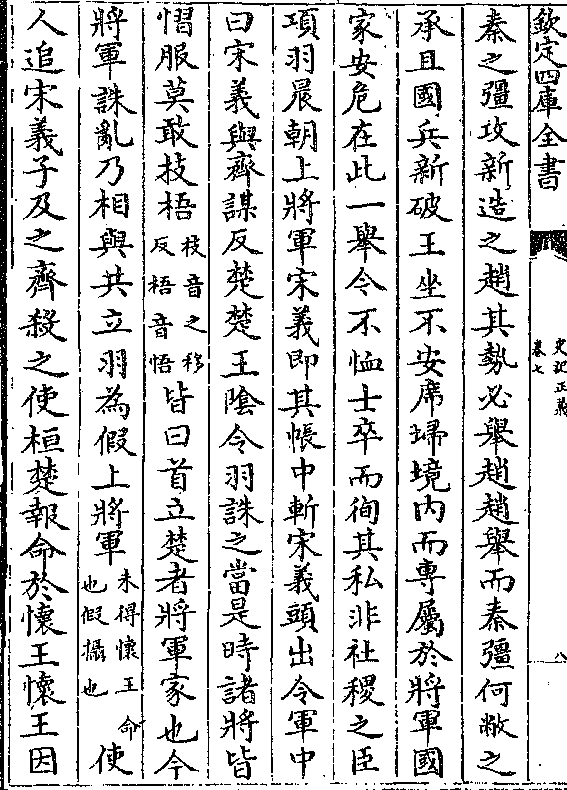 欽定四庫全書
史記正義
卷七
八
秦之彊攻新造之趙其勢必舉趙趙舉而秦彊何敝之
承且國兵新破王坐不安席埽境内而專屬於將軍國
家安危在此一舉今不恤士卒而徇其私非社稷之臣
項羽晨朝上將軍宋義即其帳中斬宋義頭出令軍中
曰宋義與齊謀反楚楚王陰令羽誅之當是時諸將皆
慴服莫敢枝梧枝音之移反梧音悟皆曰首立楚者將軍家也今
將軍誅亂乃相與共立羽為假上將軍未得懷王命也假攝也使
人追宋義子及之齊殺之使桓楚報命於懷王懷王因